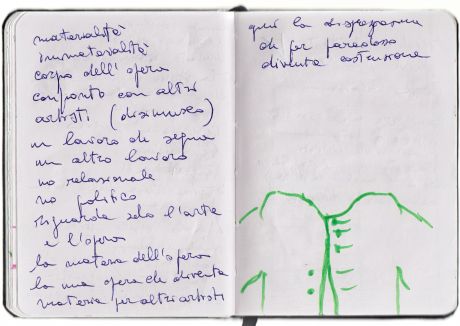 materialità
immaterialità
corpo dell'opera
confronto con altri
artisti (disimuseo)
un lavoro di segna
un altro lavoro
no relazionale
no politico
riguarda solo l'arte
e l'opera
la materia dell'opera
la mia opera che diventa
materia per altri artisti
quì la
di per paradosso
diventa costruzione